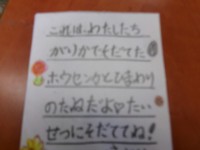 これは、わたしたち
がいかでそだてた
ホウセンかとひまわり
のたねだよ♡たい
せつにそだててね!